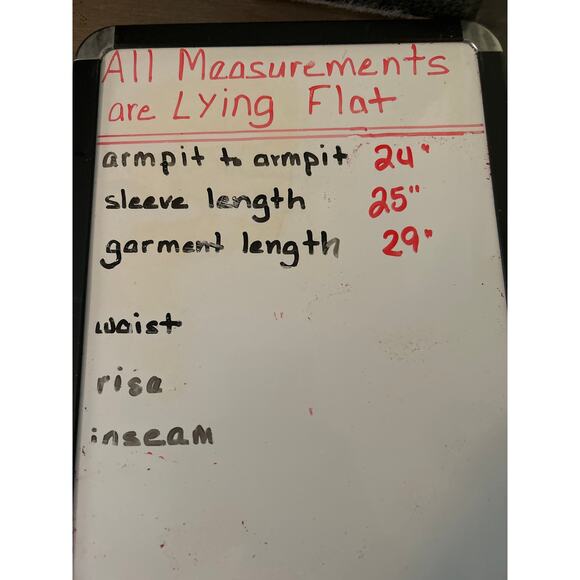 All Measurements
are Lying Flat
armpit to armpit 24"
sleeve length 25"
garment length 29"
waist
rise
inseam